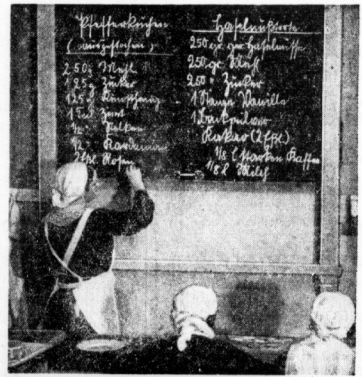 Pfefferkuchen
(ausgestochen)
250g Mehl
125g Zucker
125g Kunsthonig
Zimt
Nelken
Kardamom
2 Eßl. Rosen
Haselnußtorte
250 gr. ger. Haselnüsse
250 gr. Mehl
250 " Zucker
1 Stange Vanille
1 Backpulver
Kakao (2 Eßl.)
1/8 l starken Kaffee
1/8 l Milch